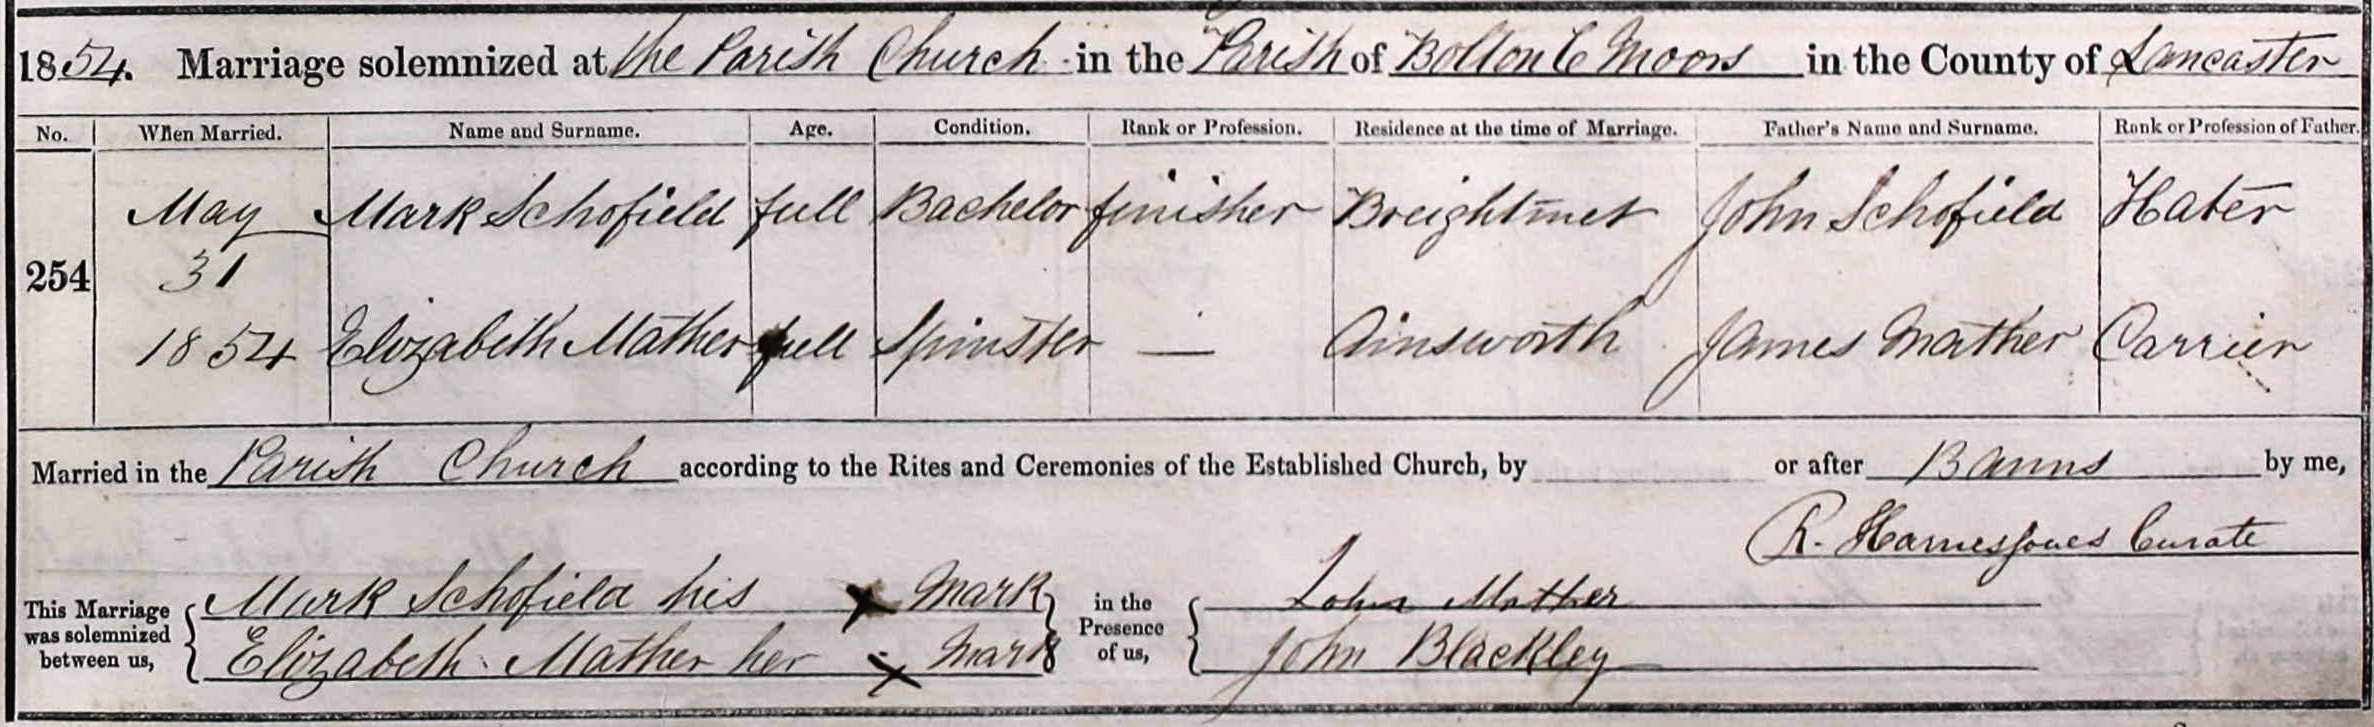 1854. Marriage solemnized at the Parish Church in the Parish of Bolton le Moors in the County of Lancaster
No. When Married. Name and Surname. Age. Condition. Rank or Profession. Residence at the time of Marriage. Father's Name and Surname. Rank or Profession of Father.
May Mark Schofield full Bachelor finisher Breightmet John Schofield Hater
254 31
1854 Elizabeth Mather full Spinster — Ainsworth James Mather Carrier
Married in the Parish Church according to the Rites and Ceremonies of the Established Church, by or after Banns by me,
R. Harnes Jones Curate
This Marriage was solemnized between us,
Mark Schofield his x mark
Elizabeth Mather her x mark
in the Presence of us,
John Mather
John Blackley